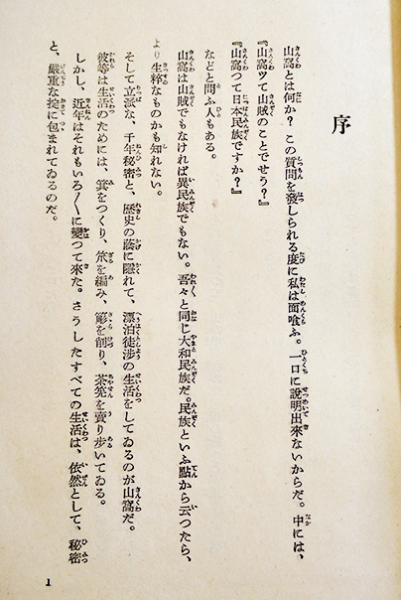 序
山窩とは何か？この質問を發しられる度に私は面喰ふ。一口に說明出來ないからだ。中には、
『山窩ツて山賊のことでせう？』
『山窩つて日本民族ですか？』
などと問ふ人もある。
山窩は山賊でもなければ異民族でもない。吾々と同じ大和民族だ。民族といふ點から云つたら、
より生粹なものかも知れない。
そして立派な、千年秘密と、歷史の蔭に隱れて、漂泊徒渉の生活をしてゐるのが山窩だ。
彼等は生活のためには、箕をつくり、笊を編み、簓を削り、茶筅を賣り步いてゐる。
しかし、近年はそれもいろ〳〵に變つて來た。さうしたすべての生活は、依然として、秘密
と、嚴重な掟に包まれてゐるのだ。
1